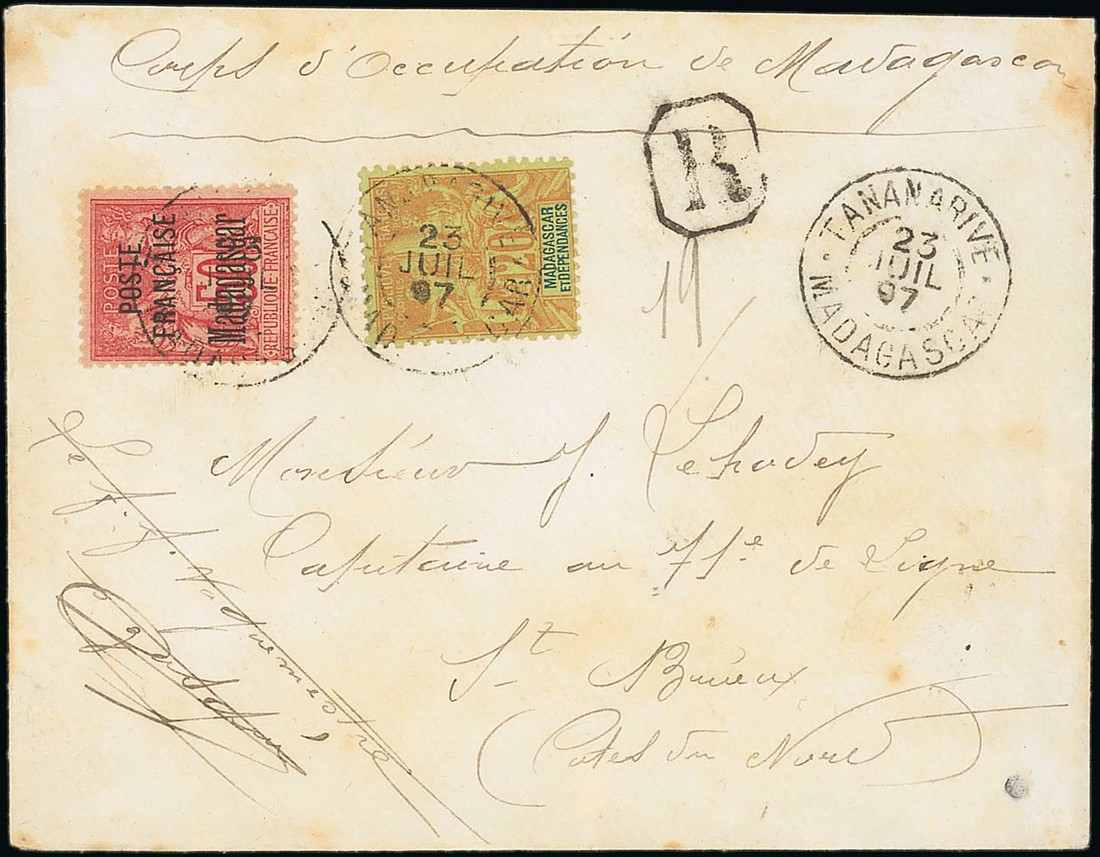 Corps d'Occupation de Madagascar
R
POSTE
FRANÇAISE
Madagascar
POSTES
50
REPUBLIQUE FRANÇAISE
20
MADAGASCAR
ET DEPENDANCES
23
JUIL
97
TANANARIVE
23
JUIL
97
MADAGASCAR
19
Monsieur J. Lehodey
Capitaine au 71e de Ligne
St Brieux
Cotes du Nord
Le f. f. Vaguemestre